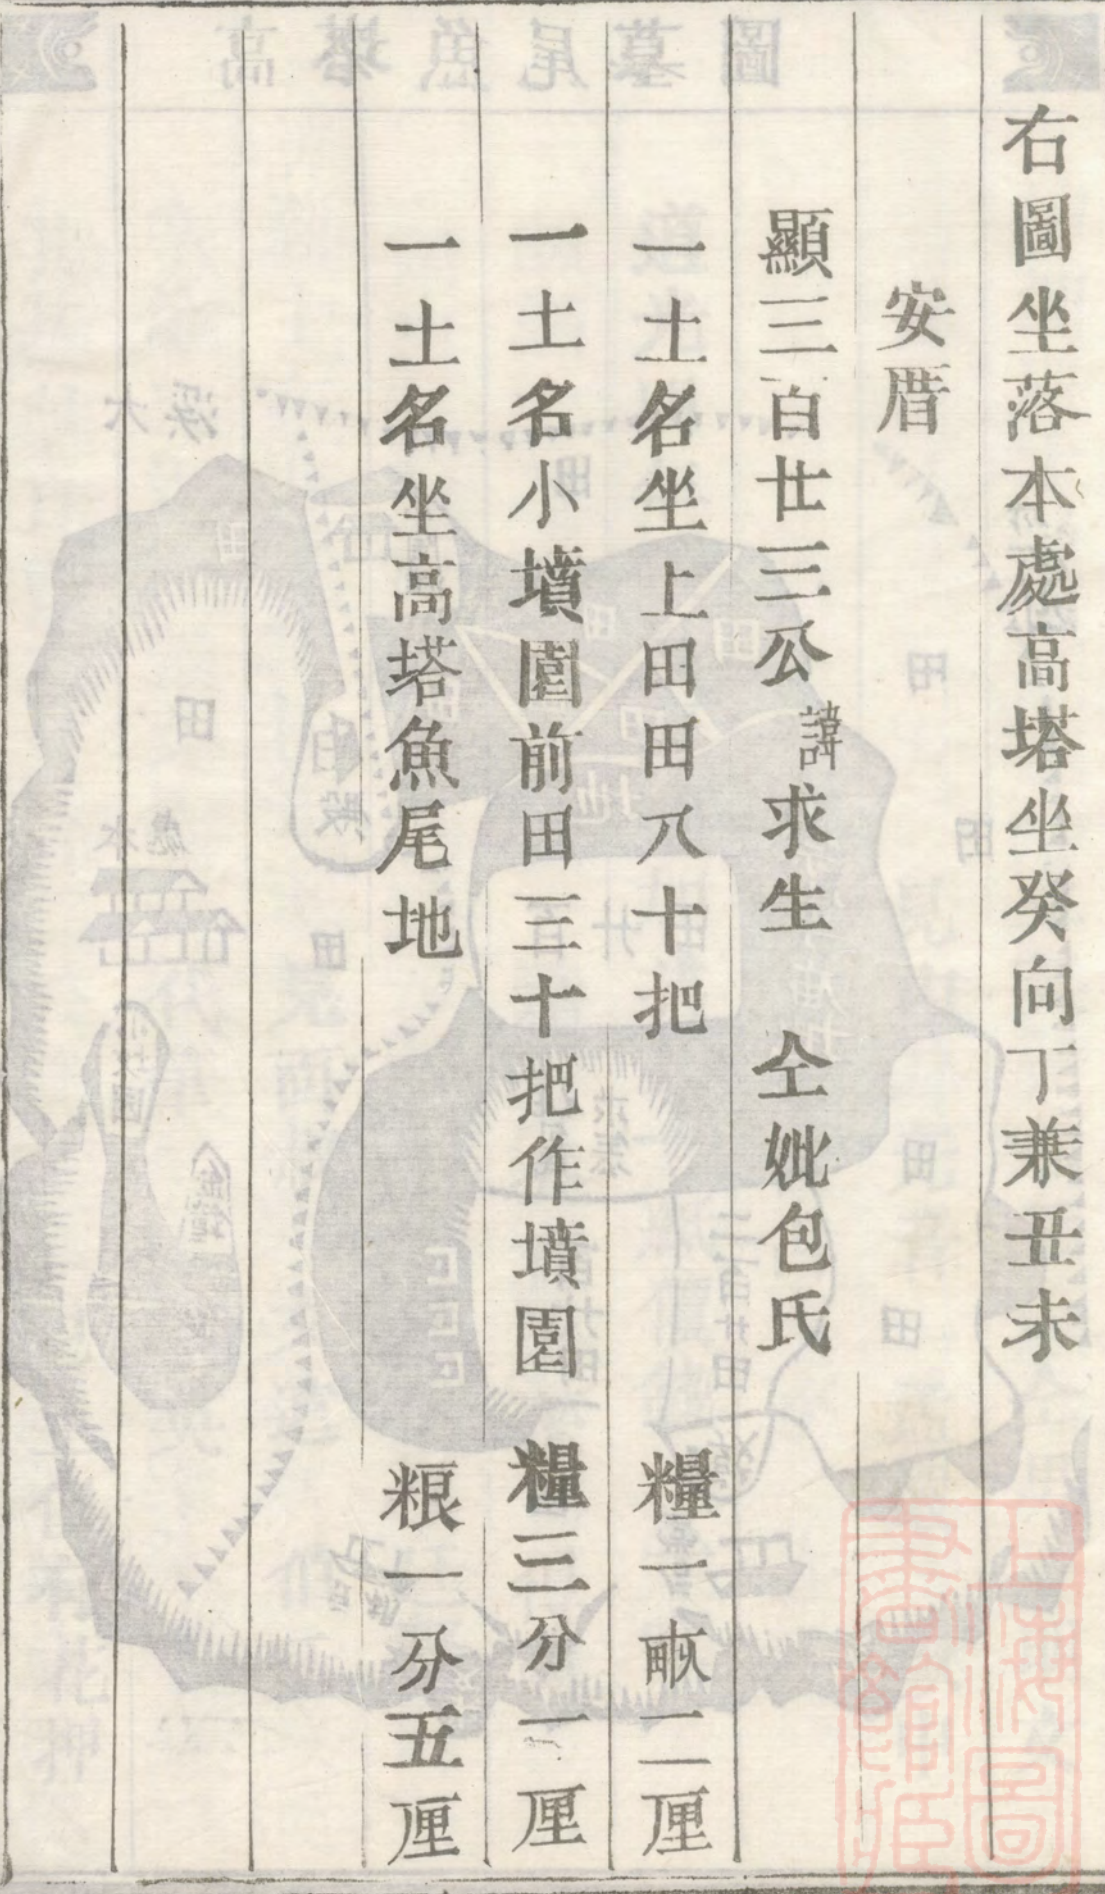 右圖坐落本處高塔坐癸向丁兼丑未
安厝
顯三百廿三公諱求生 仝妣包氏
一土名坐上田田八十把 糧一畝二厘
一土名小墳園前田三十把作墳園 糧三分一厘
一土名坐高塔魚尾地 粮一分五厘